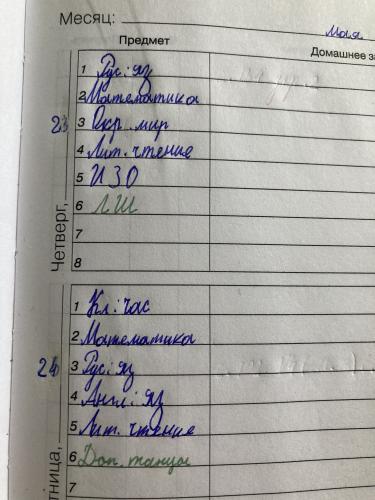 Месяц:
мая
Предмет
Домашнее за
Четверг,
23
1 Рус: яз
2 Математика
3 Окр. мир
4 Лит. чтение
5 ИЗО
6 ЛШ
7
8
тница,
24
1 Кл: час
2 Математика
3 Рус: яз
4 Англ: яз
5 Лит. чтение
6 Доп. танцы
7